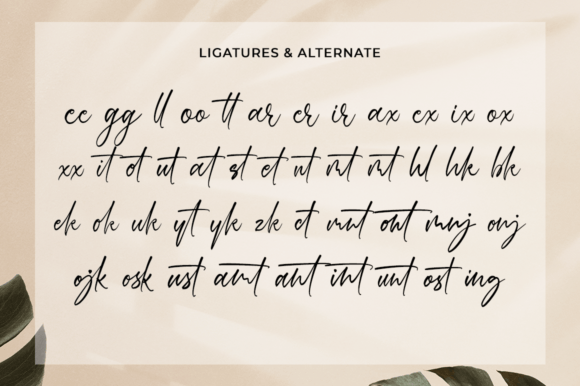 LIGATURES & ALTERNATE
ee gg ll oo tt ar er ir ax ex ix ox
xx it ot ut at st et nt rt hl hk bk
ek ok uk yt yk zk ct ont
ojk osk ust amt ant int unt ost ing